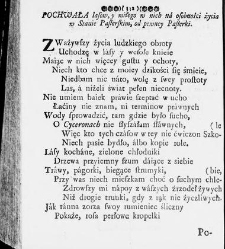 POCHWAŁA lasów, y miłego w nich na osobności życia
w Stanie Pasterskim, od pewney Pasterki.
ZWażywszy życia ludzkiego obroty
Uchodzę w lasy y wesołe knieie
Maiąc w nich więcey gustu y ochoty,
Niech kto chce z moiey dzikości się śmieie,
Niedbam nic nato, wolę z swey prostoty
Las, a niżeli świat pełen niecnoty.
Nie umiem baiek prawie szeptać w ucho
Łaciny nie znam, ni terminow prawnych
Wody sprowadzić, tam gdzie było sucho,
O Cyceronach nie słyszałam sławnych,
Więc kto tych czasów w tey nie ćwiczon Szko-
Niech pasie bydło, albo kopie role.
Lasy kochane, zielone chłodniki
Drzewa przyiemny szum daiące z siebie
Trawy, pagorki, biegące strumyki,
Przy was niech mieszkam choć o suchym chle-
Zdrowszy mi napoy z waszych źrzodeł żywych
Niż drogie trunki, gdy z rąk nie życzliwych.
Jak ránna zorza swoy rumieniec śliczny
Pokaże, rosa perłowe kropelki
Po-